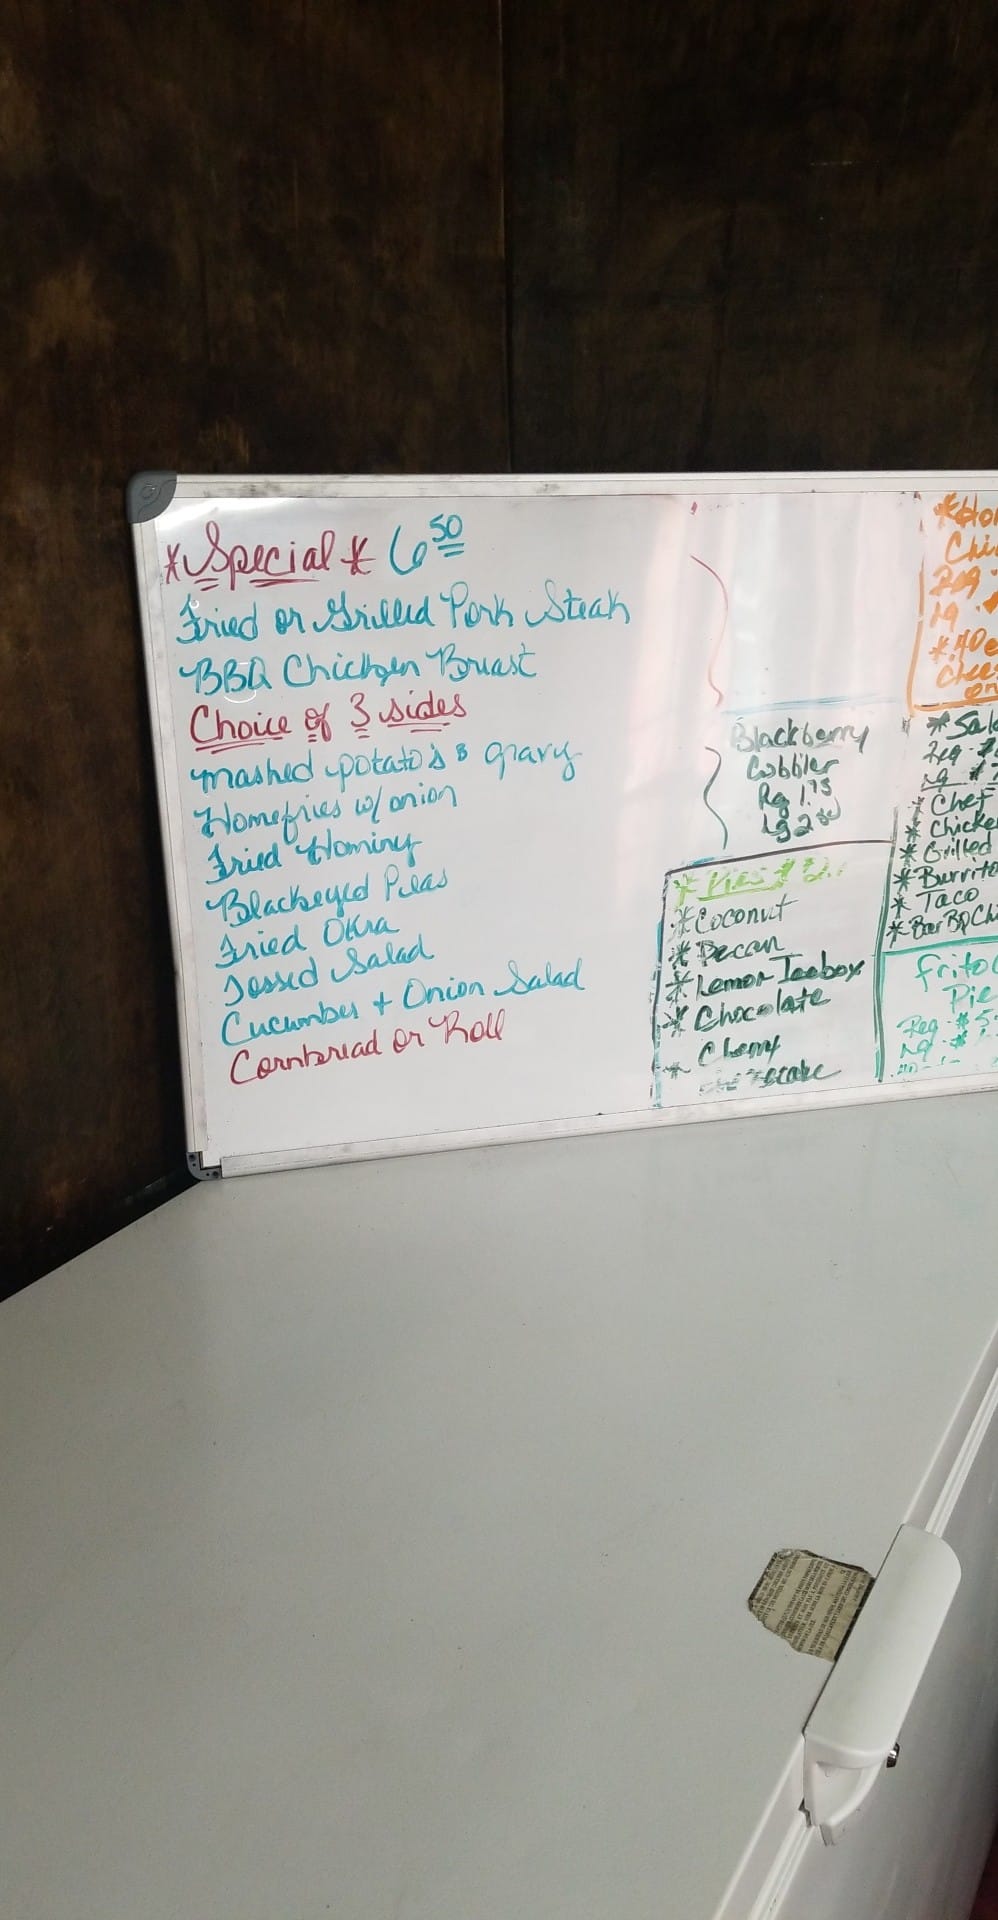 *Special* 6 50
Fried or Grilled Pork Steak
BBQ Chicken Breast
Choice of 3 sides
mashed potato's & gravy
Homefries w/onion
Fried Hominy
Blackeyed Peas
Fried Okra
Tossed Salad
Cucumber + Onion Salad
Cornbread or Roll
Blackberry
Cobbler
Rg 1.75
Lg 2
* Pies $2.
* Coconut
* Pecan
* Lemon Icebox
* Chocolate
* Cherry
Chi
Reg
Lg
* Sala
Reg
Lg
* Chef
* Chicke
* Grilled
* Burrito
* Taco
* BarBQ Chi
Frito
Pie
Reg. $5
Lg.